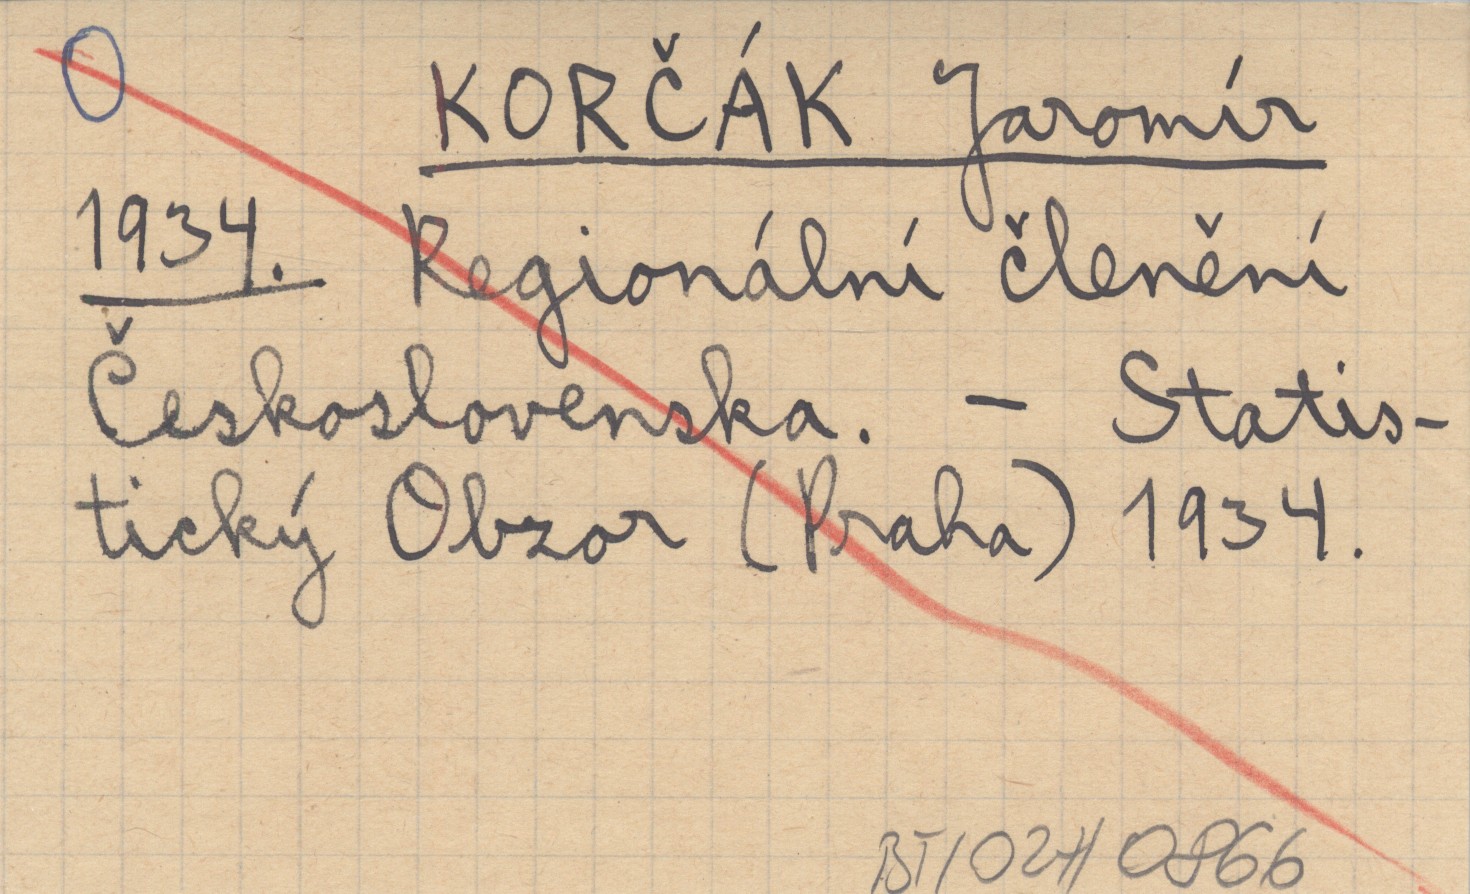 KORČÁK Jaromír
1934. Regionální členění
Československa. – Statis-
tický Obzor (Praha) 1934.
BT/027/0866